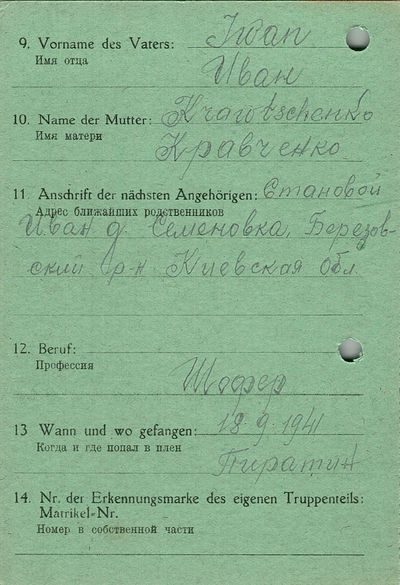 9. Vorname des Vaters: Iwan
Имя отца
Иван
10. Name der Mutter: Krawtschenko
Имя матери
Кравченко
11. Anschrift der nächsten Angehörigen: Становой
Адрес ближайших родственников
Иван д. Семеновка, Березов-
ский р-н Киевская обл.
12. Beruf:
Профессия
Шофер
13 Wann und wo gefangen: 18.9.1941
Когда и где попал в плен
Пирятин
14. Nr. der Erkennungsmarke des eigenen Truppenteils:
Matrikel-Nr.
Номер в собственной части